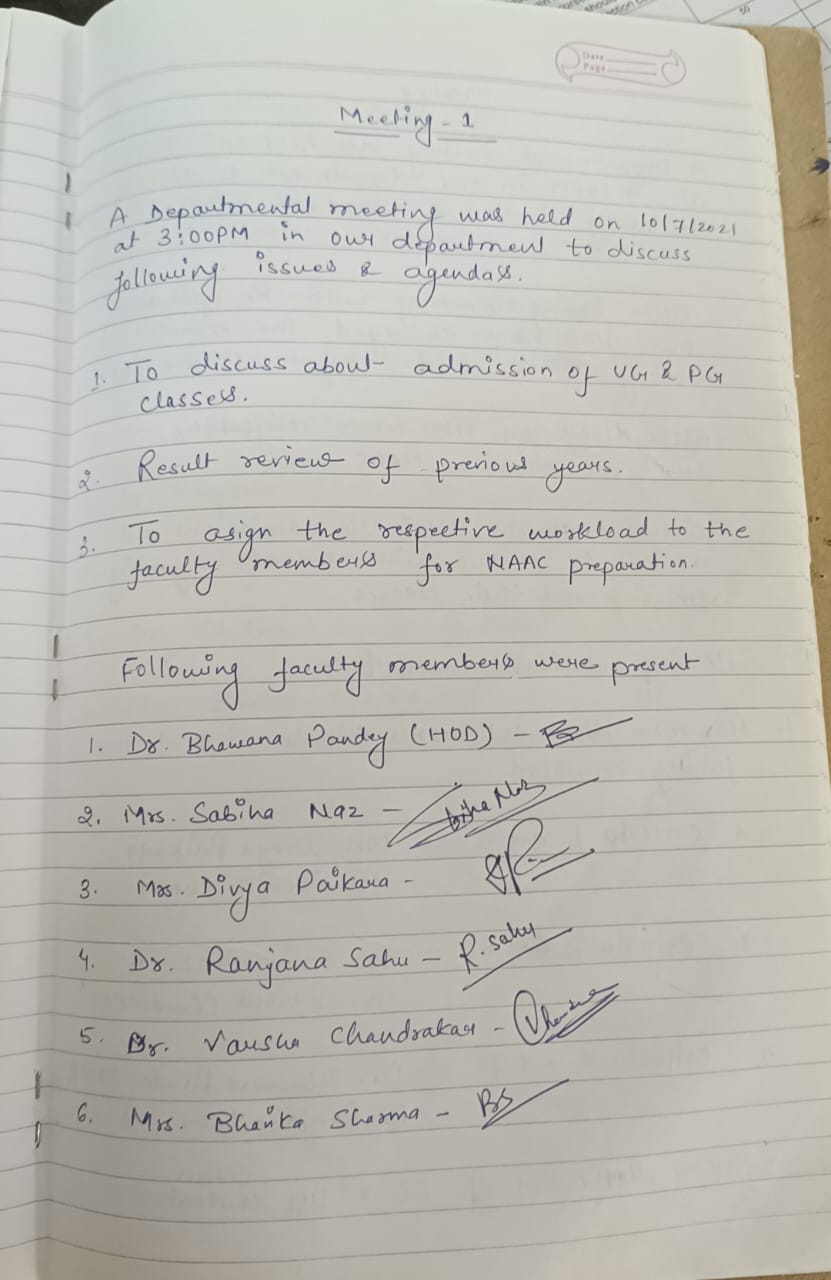 Date
Page
Meeting - 1
A Departmental meeting was held on 10/7/2021
at 3:00PM in our department to discuss
following issues & agendas.
1. To discuss about admission of UG & PG
classes.
2. Result review of previous years.
3. To asign the respective workload to the
faculty members for NAAC preparation.
Following faculty members were present
1. Dr. Bhawana Pandey (HOD) -
2. Mrs. Sabiha Naz -
3. Mrs. Divya Paikara -
4. Dr. Ranjana Sahu - R. Sahu
5. Dr. Varsha Chandrakar -
6. Mrs. Bhanika Sharma - BS